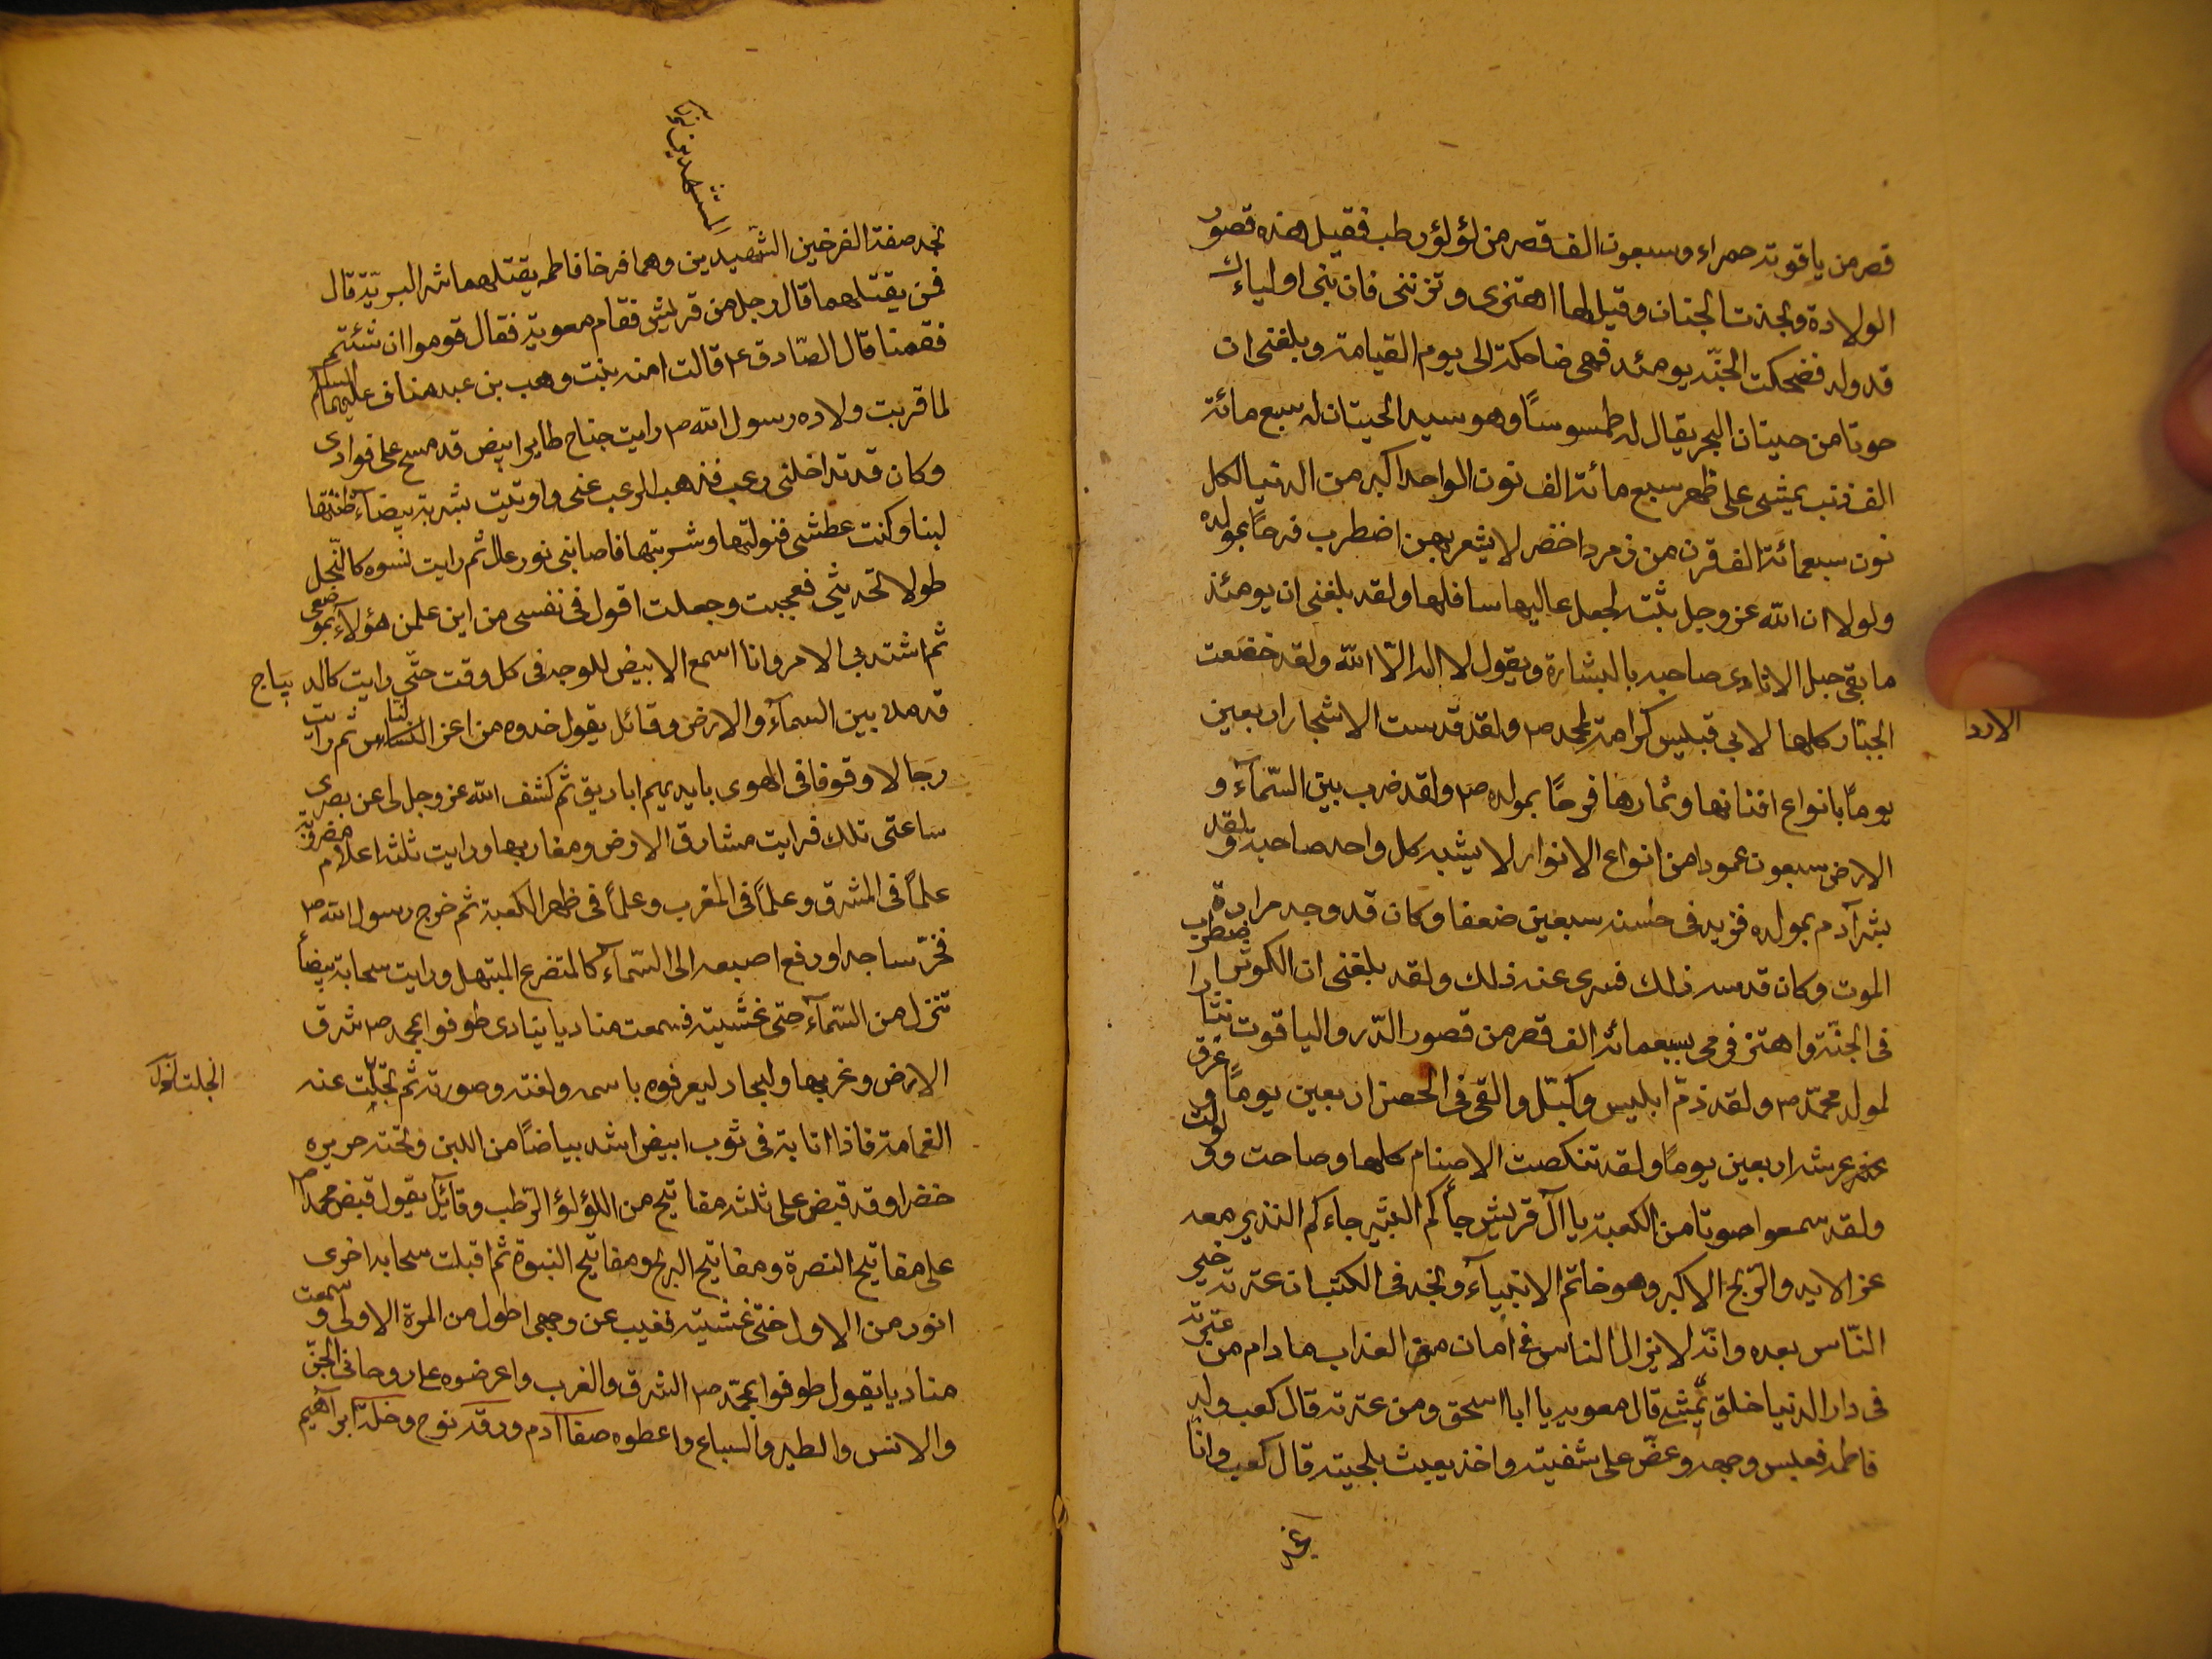 قصر من ياقوتة حمراء وسبعون الف قصر من لؤلؤ رطب فقيل هذه قصور
الولادة ونجدت الجنان وقيل لها اهتزى وتزينى فان نبى اولياءك
قد ولد فضحكت الجنّة يومئذ فهى ضاحكة الى يوم القيامة وبلغنى ان
حوتا من حيتان البحر يقال له طمسوسًا وهو سيد الحيتان له سبع مائة
الف ذنب يمشى على ظهره سبع مائة الف نون الواحد اكبر من الدنيا لكل
نون سبعمائة الف قرن من زمرد اخضر لا يشعر بهن اضطرب فرحًا بمولده
ولولا ان الله عز وجل يثبته لجعل عاليها سافلها ولقد بلغنى ان يومئذ
ما بقى جبل الا نادى صاحبه بالبشارة ويقول لا اله الّا الله ولقد خضعت
الجبال كلها لابى قبيس كرامة لمحمد ص ولقد قدست الاشجار اربعين
الارد
يومًا بانواع افنانها وثمارها فرحًا بمولده ص ولقد ضرب بين السّمآء و
الارض سبعون عمودا من انواع الانوار لا يشبه كل واحد صاحبه ولقد
بشر آدم بمولده فزيد فى حسنه سبعين ضعفا وكان قد وجد مرارة
الموت وكان قد مسه ذلك فسرى عنه ذلك ولقد بلغنى ان الكوثر اضطرب
فى الجنّة واهتز فرمى بسبعمائة الف قصر من قصور الدّر والياقوت نثارا
لمولد محمّد ص ولقد ذمّ ابليس وكبّل والقى فى الحصن اربعين يومًا وغرق
عرشه اربعين يومًا ولقد تنكصت الاصنام كلها وصاحت وولولت
ولقد سمعوا صوتا من الكعبة يا آل قريش جآءكم البشير جاءكم النذير معه
عز الابد والرّبح الاكبر وهو خاتم الانبيآء ونجد فى الكتب ان عترته خير
النّاس بعده وانّه لا يزال الناس فى امان من العذاب ما دام من عترته
فى دار الدنيا خلق يمشى قال معوية يا ابا اسحق ومن عترته قال كعب ولد
فاطمة فعبس وجهه وعضّ على شفيته واخذ يعبث بلحيته قال كعب وانّا
نجد
نجد صفة الفرخين الشّهيدين وهما فرخا فاطمه يقتلهما شر البريّة قال
فمن يقتلهما قال رجل من قريش فقام معوية فقال قوموا ان شئتم
فقمنا قال الصّادق ع قالت امنه بنت وهب بن عبد مناف عليهما السلم
لما قربت ولاده رسول الله ص رايت جناح طاير ابيض قد مسح على فوادى
وكان قد تداخلنى رعب فذهب الرعب عنى واوتيت بشربة بيضآء ظننتها
لبنا وكنت عطشى فنولتها وشربتها فاصابنى نور عال ثم رايت نسوه كالنّخل
طولا تحدثنى فعجبت وجعلت اقول فى نفسى من اين علمن هؤلآء بموضعى
ثم اشتد بى الامر وانا اسمع الابيض للوجد فى كل وقت حتّى رايت كالديباج
قد ملا بين السمآء والارض وقائل يقول خدوه من اعز الناس ثم رايت
رجالا وقوفا فى الهوى بايديهم اباريق ثم كشف الله عز وجل لى عن بصرى
ساعتى تلك فرايت مشارق الارض ومغاربها ورايت ثلثه اعلام مضروبة
علمًا فى المشرق وعلمًا فى المغرب وعلمًا فى ظهر الكعبة ثم خرج رسول الله ص
فخرّ ساجدا ورفع اصبعه الى السّمآء كالمتضرع المبتهل ورايت سحابة بيضآ
تنزل من السّمآء حتى غشيته فسمعت مناديا ينادى طوفوا بمحمد ص شرق
الارض وغربها والبحار ليعرفوه باسمه ولغته وصورته ثم تجلّت عنه
الغمامة فاذا انا به فى ثوب ابيض اشد بياضًا من اللبن وتحته حريره
خضرا وقد قبض على ثلثه مفاتيح من اللؤلؤ الرّطب وقآئل يقول قبض محمد ص
على مفاتيح النصرة ومفاتيح الريح ومفاتيح النبوة ثم اقبلت سحابه اخرى
انور من الاول حتّى غشيته فغيب عن وجهى اطول من المرة الاولى وسمعت
مناديا يقول طوفوا بمحمّد ص الشرق والغرب واعرضوه على روحانى الجنّ
والانس والطير والسباع واعطوه صفا آدم ورقة نوح وخلّة ابراهيم